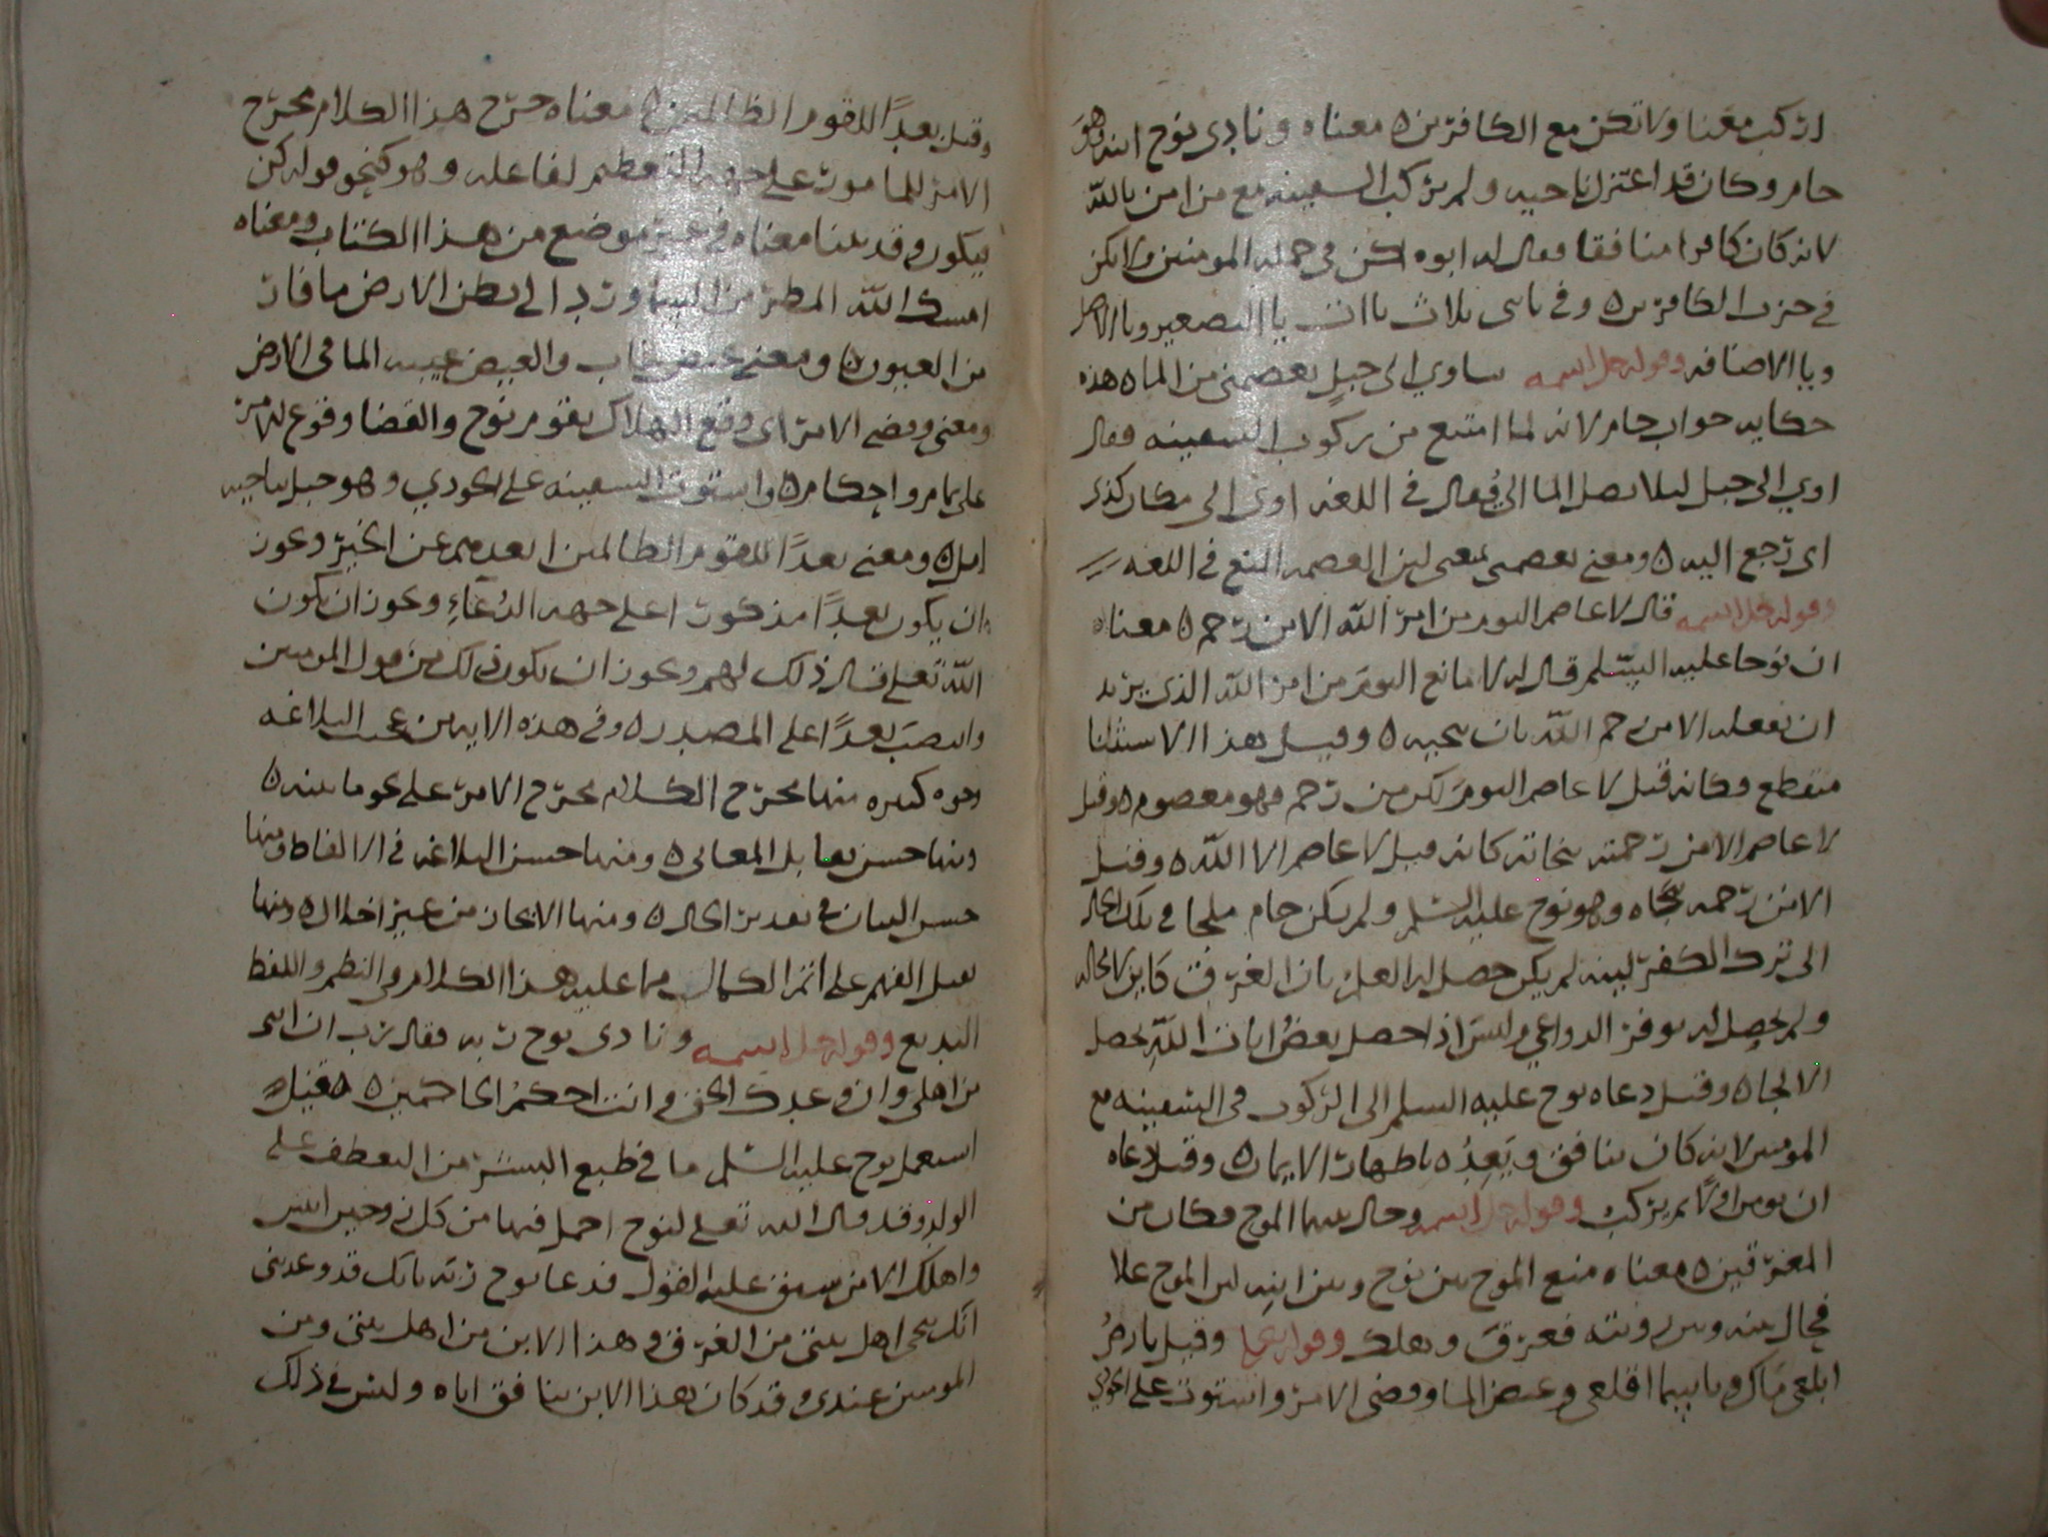 اركب معنا ولا تكن مع الكافرين ه معناه ونادى نوح ابنه وهو
حام وكان قد اعتزل ناحيه ولم يركب السفينه مع من امن بالله
لانه كان كافرا منافقا فقال له ابوه اكن في جمله المومنين ولا تكن
في حزب الكافرين ه وفي يابني ثلاث ياات يا التصغير ويا الاصل
ويا الاضافه وقوله جل اسمه ساوي الى جبل يعصمني من الما ه هذه
حكايه جواب حام لانه لما امتنع من ركوب السفينه فقال
اوي الى جبل ليلا يصل الما الي يقال في اللغه اوى الى مكان كذى
اى رجع اليه ه ومعنى يعصمني يمنعني لين العصمه المنع في اللغه
وقوله جل اسمه قال لا عاصم اليوم من امر الله الا من رحم ه معناه
ان نوحا عليه السلم قال له لا مانع اليوم من امر الله الذى يريد
ان يفعله الا من رحم الله بان ينجيه ه وقيل هذا الاستثنا
منقطع وكانه قيل لا عاصم اليوم لكن من رحم فهو معصوم ه وقيل
لا عاصم الا من رحمته نجاته كانه قيل لا عاصم الا الله ه وقيل
الا من رحمه نجاه وهو نوح عليه السلم ولم يكن حام ملجا في تلك الحال
الى ترك الكفر لينه لم يكن حصل له العلم بان الغرق كاين لا محاله
ولم يحصل له توفر الدواعي وليس اذا حصل بعض ايات الله يحصل
الالجا ه وقيل دعاه نوح عليه السلم الى الركوب في السفينه مع
المومنين لانه كان ينافق ويعده باظهار الايمان ه وقيل دعاه
ان يومن اولا ثم يركب وقوله جل اسمه وحال بينهما الموج فكان من
المغرقين ه معناه منع الموج بين نوح وبين ابنه لين الموج علا
فحال بينه وبين رويته فغرق وهلك وقوله تعالى وقيل يا ارض
ابلعي ماك ويا سما اقلعي وغيض الما وقضى الامر واستوت على الجودي
وقيل بعدًا للقوم الظالمين ه معناه خرج هذا الكلام مخرج
الامر للمامور على جهه التعظيم لفاعله وهو كنحو قوله كن
فيكون وقد بينا معناه في غير موضع من هذا الكتاب ومعناه
امسك الله المطر من السما ورد الى بطن الارض ما فار
من العيون ه ومعنى غيض غاب والغيض غيبه الما في الارض
ومعنى وقضى الامر اى وقع الهلاك بقوم نوح والقضا وقوع الامر
على تمام واحكام ه واستوت السفينه على الجودي وهو جبل بناحيه
امل ه ومعنى بعدًا للقوم الظالمين ابعدهم عن الخير وعون
ان يكون بعدًا مذكورا على جهه الدعاء ويجوز ان يكون
الله تعلى قال ذلك لهم ويجوز ان يكون ذلك من قول المومنين
وانتصب بعدًا على المصدر ه وفي هذه الايه من عجيب البلاغه
وجوه كثيره منها مخرج الكلام مخرج الامر على نحو ما بينه ه
ومنها حسن تقابل المعانى ه ومنها حسن البلاغه في الالفاظ ومنها
حسن البيان في تقدير الحال ه ومنها الايجاز من غير اخلال ه ومنها
تقبل الفهم على اتم الكمال مما عليه هذا الكلام في النظم واللفظ
البديع وقوله جل اسمه ونادى نوح ربه فقال رب ان ابنى
من اهلى وان وعدك الحق وانت احكم الحاكمين ه قيل
استعمل نوح عليه السلم ما في طبع البشر من التعطف على
الولد وقد قال الله تعلى لنوح احمل فيها من كل زوجين اثنين
واهلك الا من سبق عليه القول فدعا نوح ربه بانك قد وعدتنى
انك تنجى اهل بيتى من الغرق وهذا الابن من اهل بيتى ومن
المومنين عندى وقد كان هذا الابن ينافق اباه وليس في ذلك